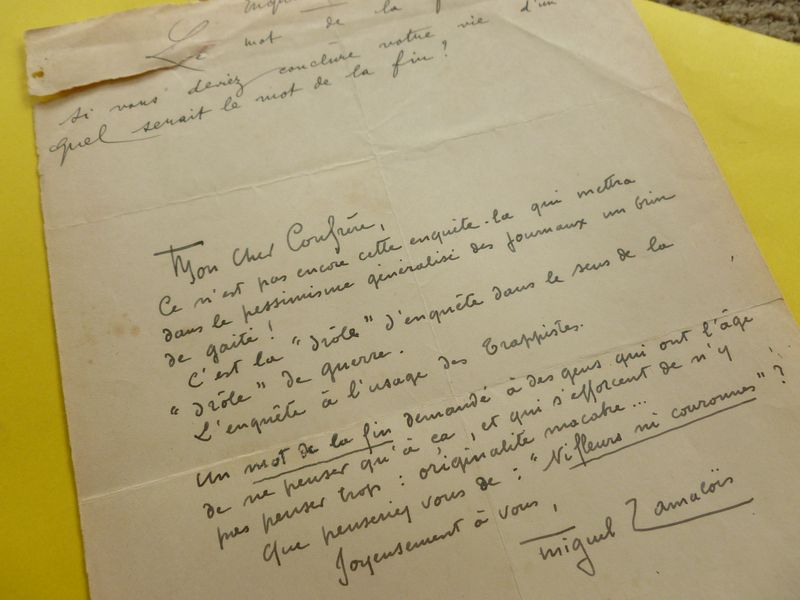 Enquê
Le mot de la f
si vous deviez conclure votre vie d'un
quel serait le mot de la fin ?
Mon Cher Confrère,
Ce n'est pas encore cette enquête-là qui mettra
dans le pessimisme généralisé des journaux un brin
de gaîté !
C'est la "drôle" d'enquête dans le sens de la
"drôle" de guerre.
L'enquête à l'usage des Trappistes.
Un mot de la fin demandé à des gens qui ont l'âge
de ne penser qu'à ça, et qui s'efforcent de n'y
pas penser trop : originalité macabre...
Que penseriez vous de : "Ni fleurs ni couronnes" ?
Joyeusement à vous,
Miguel Zamacoïs